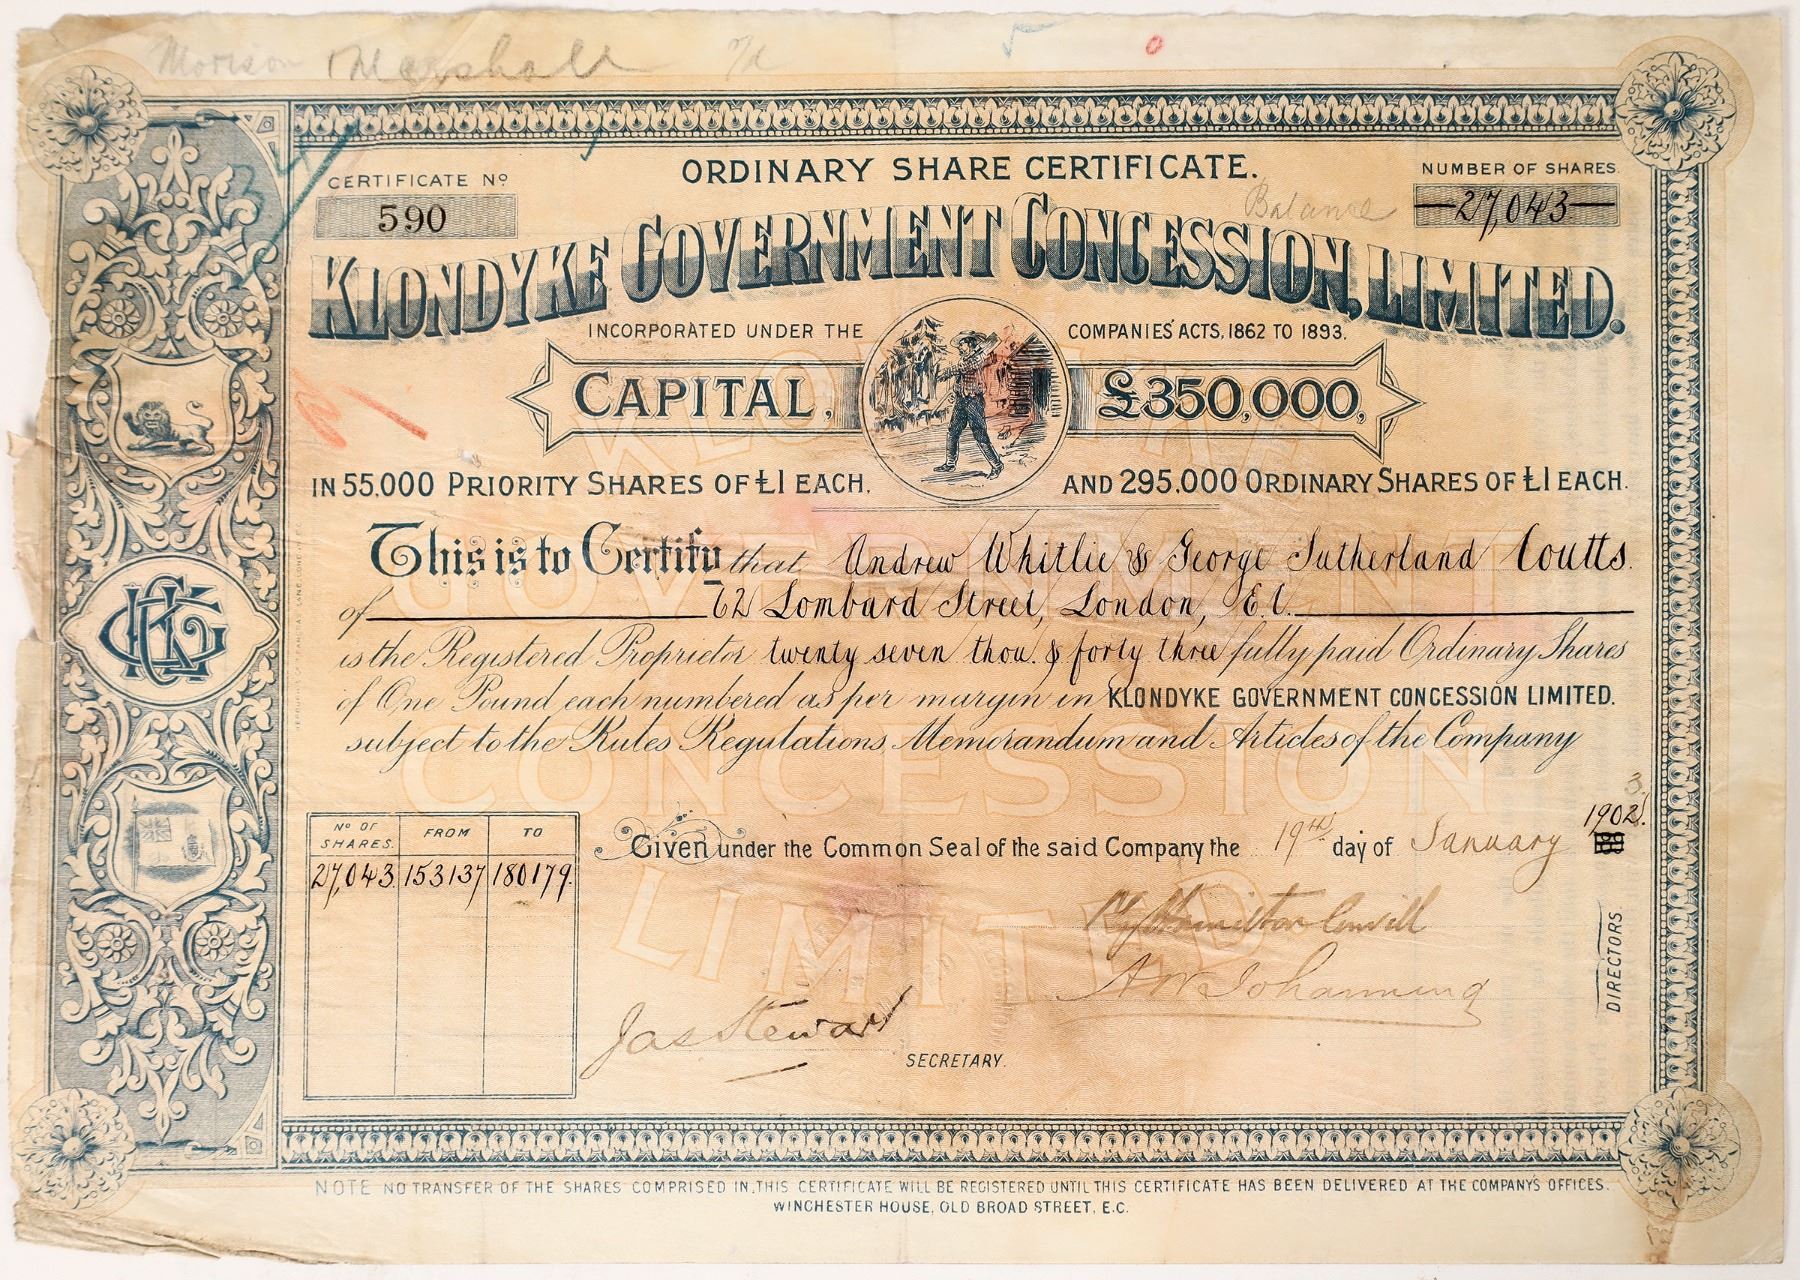 Morison Marshall
ORDINARY SHARE CERTIFICATE.
CERTIFICATE Nº
590
NUMBER OF SHARES.
Balance
27,043
KLONDYKE GOVERNMENT CONCESSION, LIMITED.
INCORPORATED UNDER THE COMPANIES' ACTS, 1862 TO 1893.
CAPITAL, £350,000,
IN 55,000 PRIORITY SHARES OF £1 EACH, AND 295,000 ORDINARY SHARES OF £1 EACH.
This is to Certify that Andrew Whitlie & George Sutherland Coutts.
of 72 Lombard Street, London, E.C.
is the Registered Proprietor twenty seven thou. & forty three fully paid Ordinary Shares
of One Pound each numbered as per margin in KLONDYKE GOVERNMENT CONCESSION LIMITED.
subject to the Rules Regulations Memorandum and Articles of the Company
KLONDYKE
GOVERNMENT
CONCESSION
LIMITED
Nº OF SHARES. FROM TO
27,043 153137 180179.
Given under the Common Seal of the said Company the 19th day of January 1902.
3.
A W Johanning
DIRECTORS.
Jas Stewart
SECRETARY.
NOTE NO TRANSFER OF THE SHARES COMPRISED IN THIS CERTIFICATE WILL BE REGISTERED UNTIL THIS CERTIFICATE HAS BEEN DELIVERED AT THE COMPANYS OFFICES.
WINCHESTER HOUSE, OLD BROAD STREET, E.C.